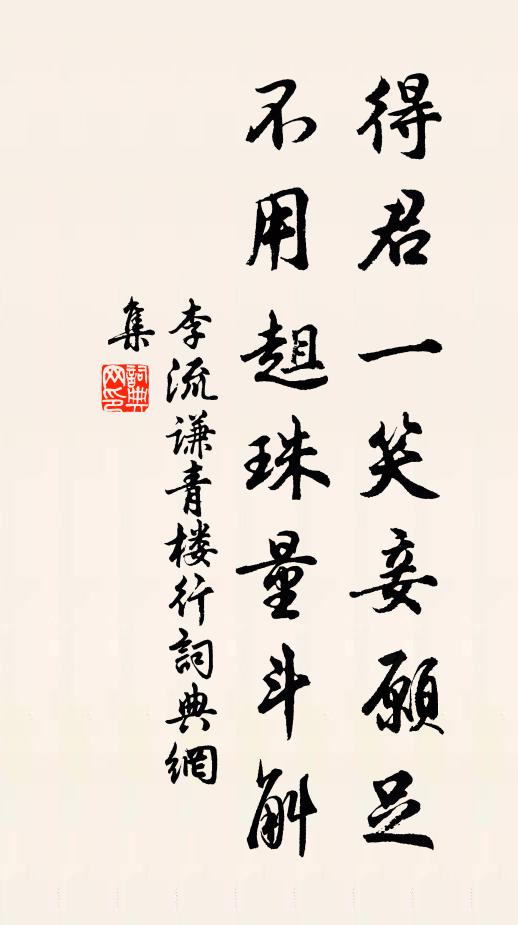 得君一笑妾願足
不用趄珠量斗斛
李流谦青楼行詞典網
集
詞典
网印